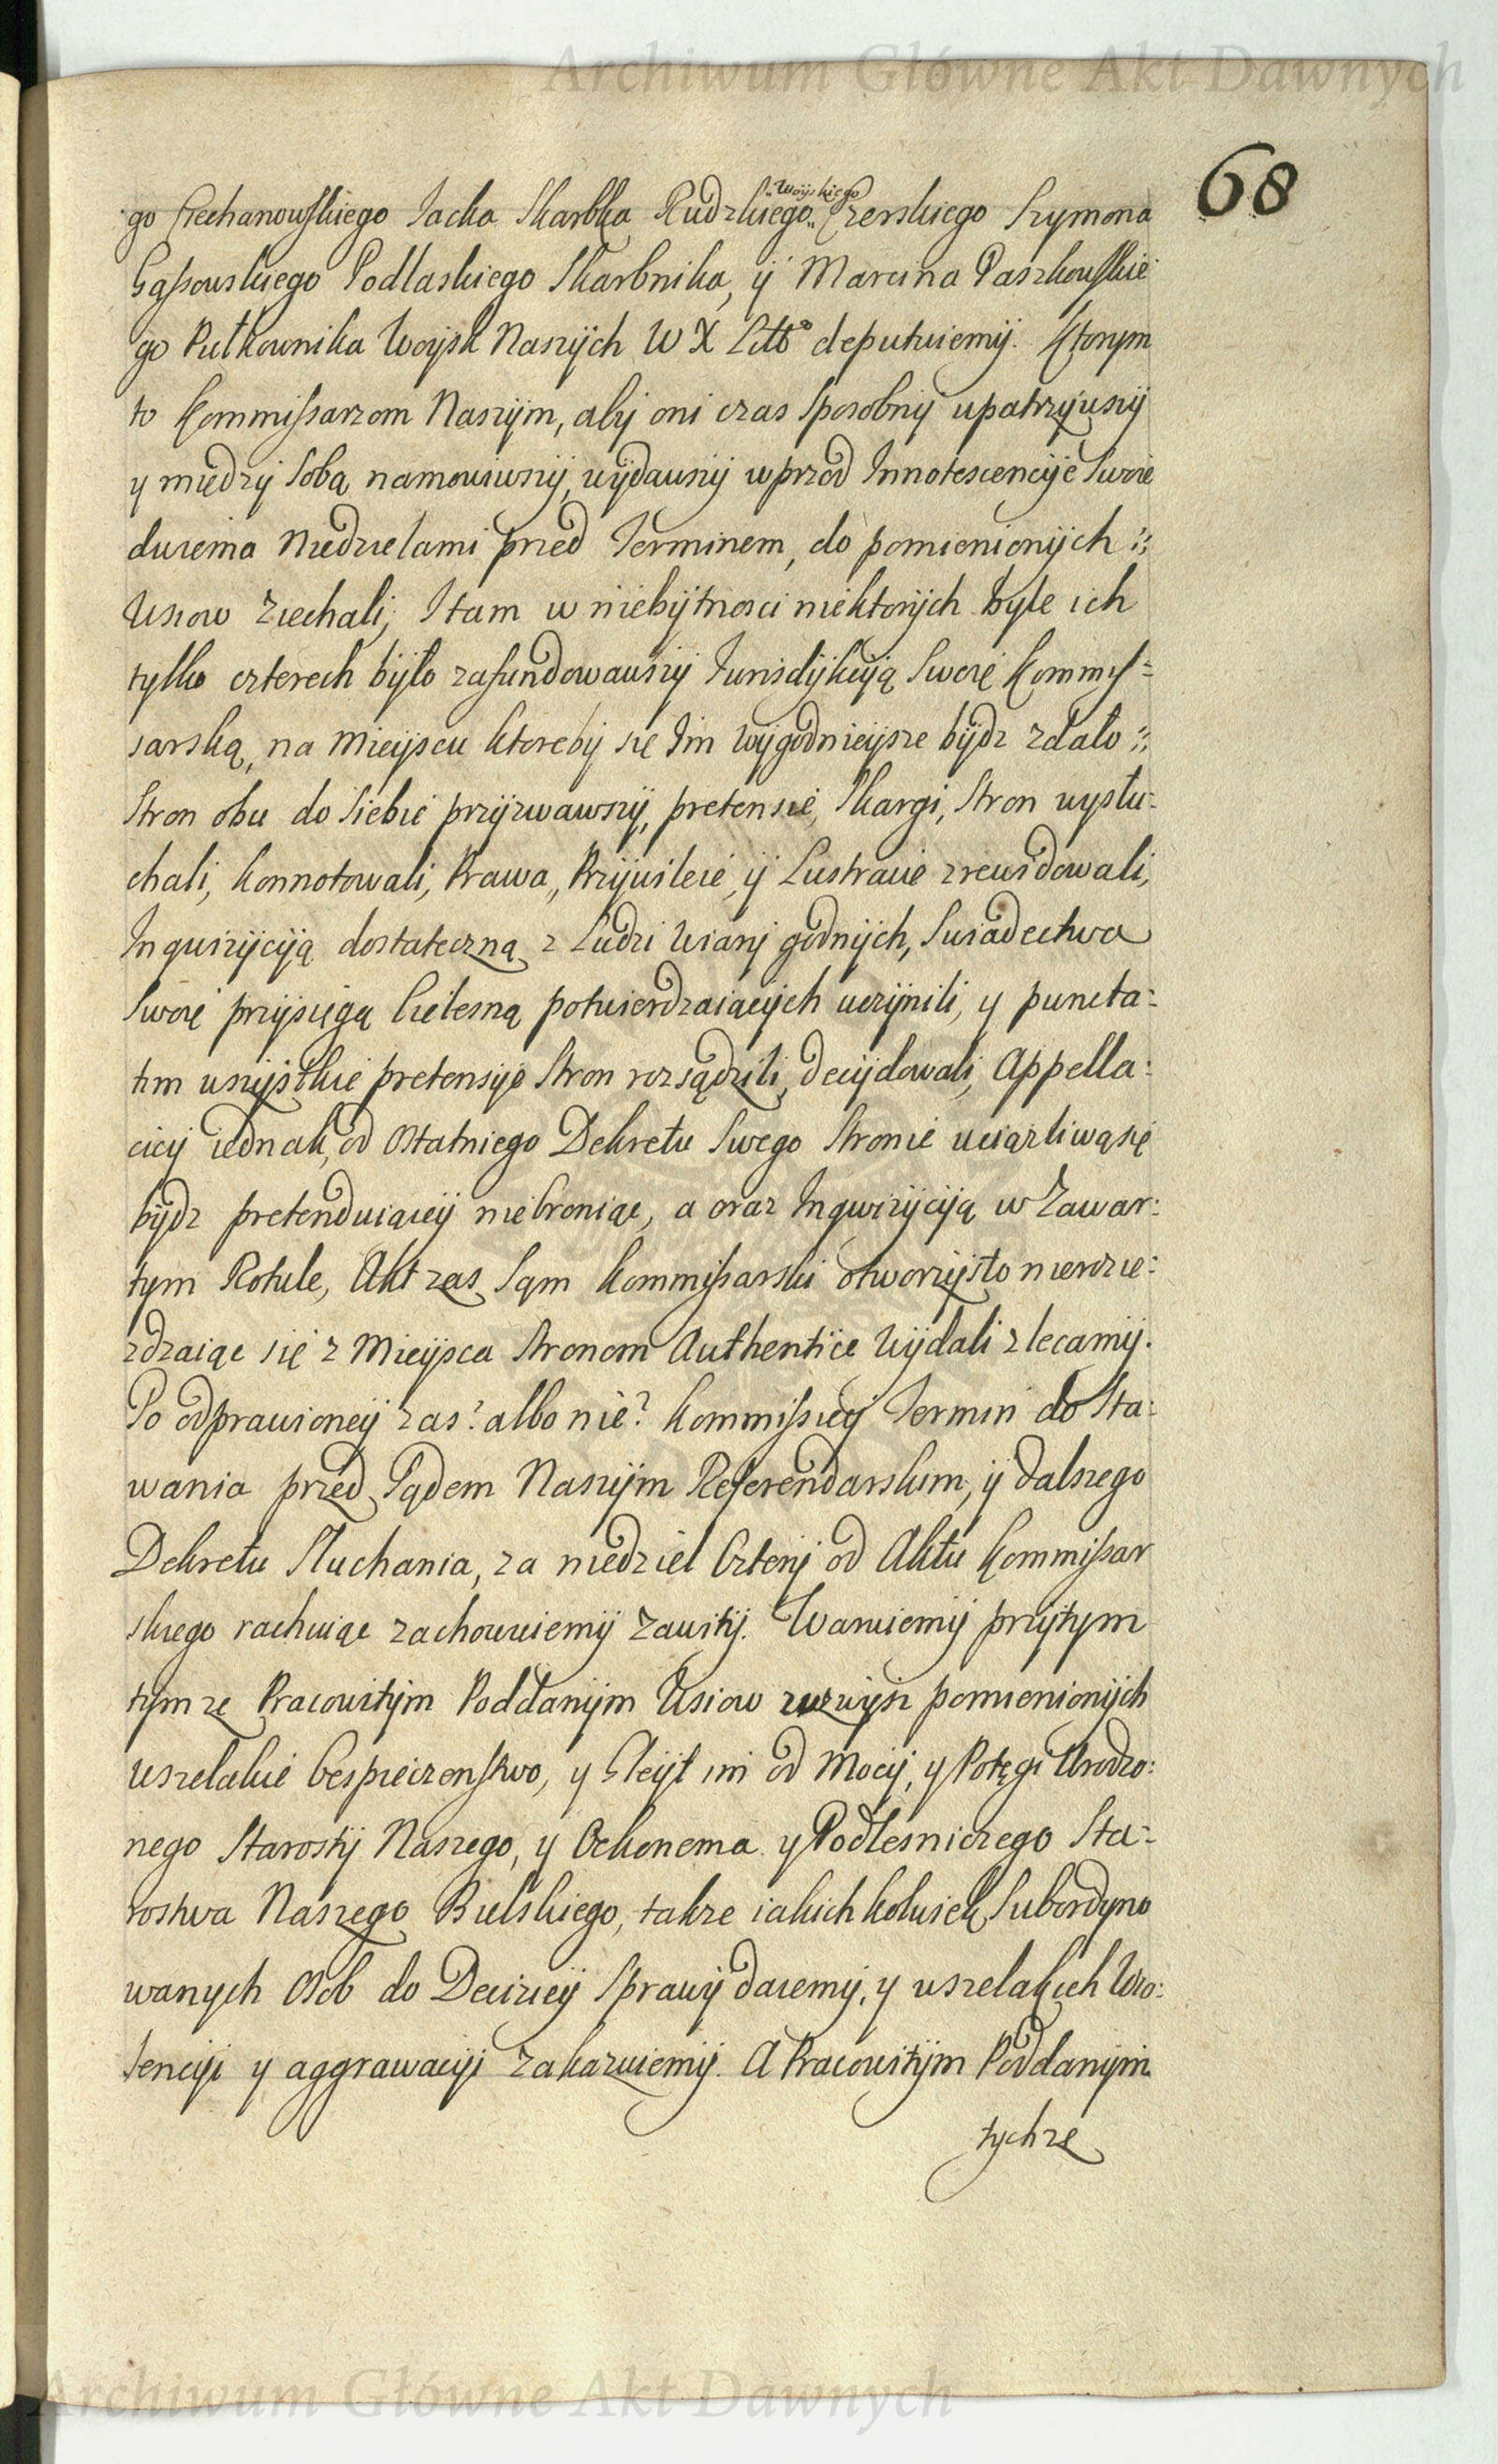 Archiwum Główne Akt Dawnych
68
go Ciechanowskiego Jacka Skarbka Rudzkiego „Woyskiego„ Czerskiego Szymona
Gąssowskiego Podlaskiego Skarbnika, ÿ Marcina Paszkowskie
go Pułkownika Woÿsk Naszÿch W X Litto deputuiemÿ. Ktorym
to Kommissarzom Naszÿm, abÿ oni czas sposobnÿ upatrzÿwszÿ
y międzÿ sobą namowiwszÿ, wÿdawszÿ wprzod Innotescencÿe Swoie
dwiema Niedzielami przed Terminem, do pomienionÿch
Wsiow Ziechali, I tam w niebÿtnosci niektorÿch byle ich
tylko czterech bÿło zafundowawszÿ Jurisdÿkcÿą Swoię Kommis-
sarską, na Mieÿscu ktoreby się Im wÿgodnieÿsze bÿdz zdało
Stron obu do Siebie przÿzwawszÿ, pretensie, Skargi, Stron wysłu-
chali, konnotowali, Prawa, Przÿwileie, ÿ Lustracie zrewidowali,
Inquizÿcÿą dostateczną z Ludzi Wiarÿ godnÿch, Swiadectwa
Swoię przÿsięgą Cielesną potwierdzaiącÿch uczÿnili, y puncta-
tim wszÿstkie pretensÿe Stron rozsądzili, decÿdowali, Appella-
cieÿ iednak, od Ostatniego Dekretu Swego Stronie uciążliwą się
bÿdz pretenduiąceÿ niebroniąc, a oraz Inqwizÿcÿą w Zawar-
tym Rotule, Akt zas Sąm Kommissarski otworzÿsto nierozie-
zdzaiąc się z Mieÿsca Stronom Authentice Wÿdali zlecamÿ.
Po odprawioneÿ zas? albo nie? Kommissieÿ Termin do Sta-
wania przed Sądem Naszÿm Referendarskim, ÿ dalszego
Dekretu Słuchania, za niedziel Czterÿ od Aktu Kommissar
skiego rachuiąc zachowuiemÿ Zawitÿ. Waruiemÿ przÿtym
tymze Pracowitÿm Poddanÿm Wsiow zwzwÿsz pomienionÿch
wszelakie bespieczenstwo, y Gleÿt im od Mocÿ, y Potęgi Urodzo-
nego Starostÿ Naszego, y Oekonoma y Podlesniczego Sta-
rostwa Naszego Bielskiego, takze iakichkolwiek Subordyno
wanych Osob do Decizieÿ Sprawÿ daiemÿ, y wszelakich Wio-
lencÿi y aggrawacÿi zakazuiemÿ. A Pracowitÿm Poddanÿm
tychze
Archiwum Główne Akt Dawnych